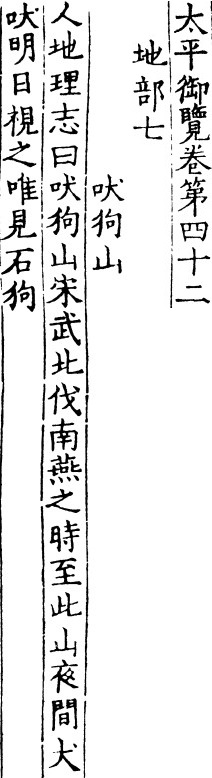 太平御覽卷第四十二
地部七
吠狗山
人地理志曰吠狗山宋武北伐南燕之時至此山夜間犬
吠明日視之唯見石狗